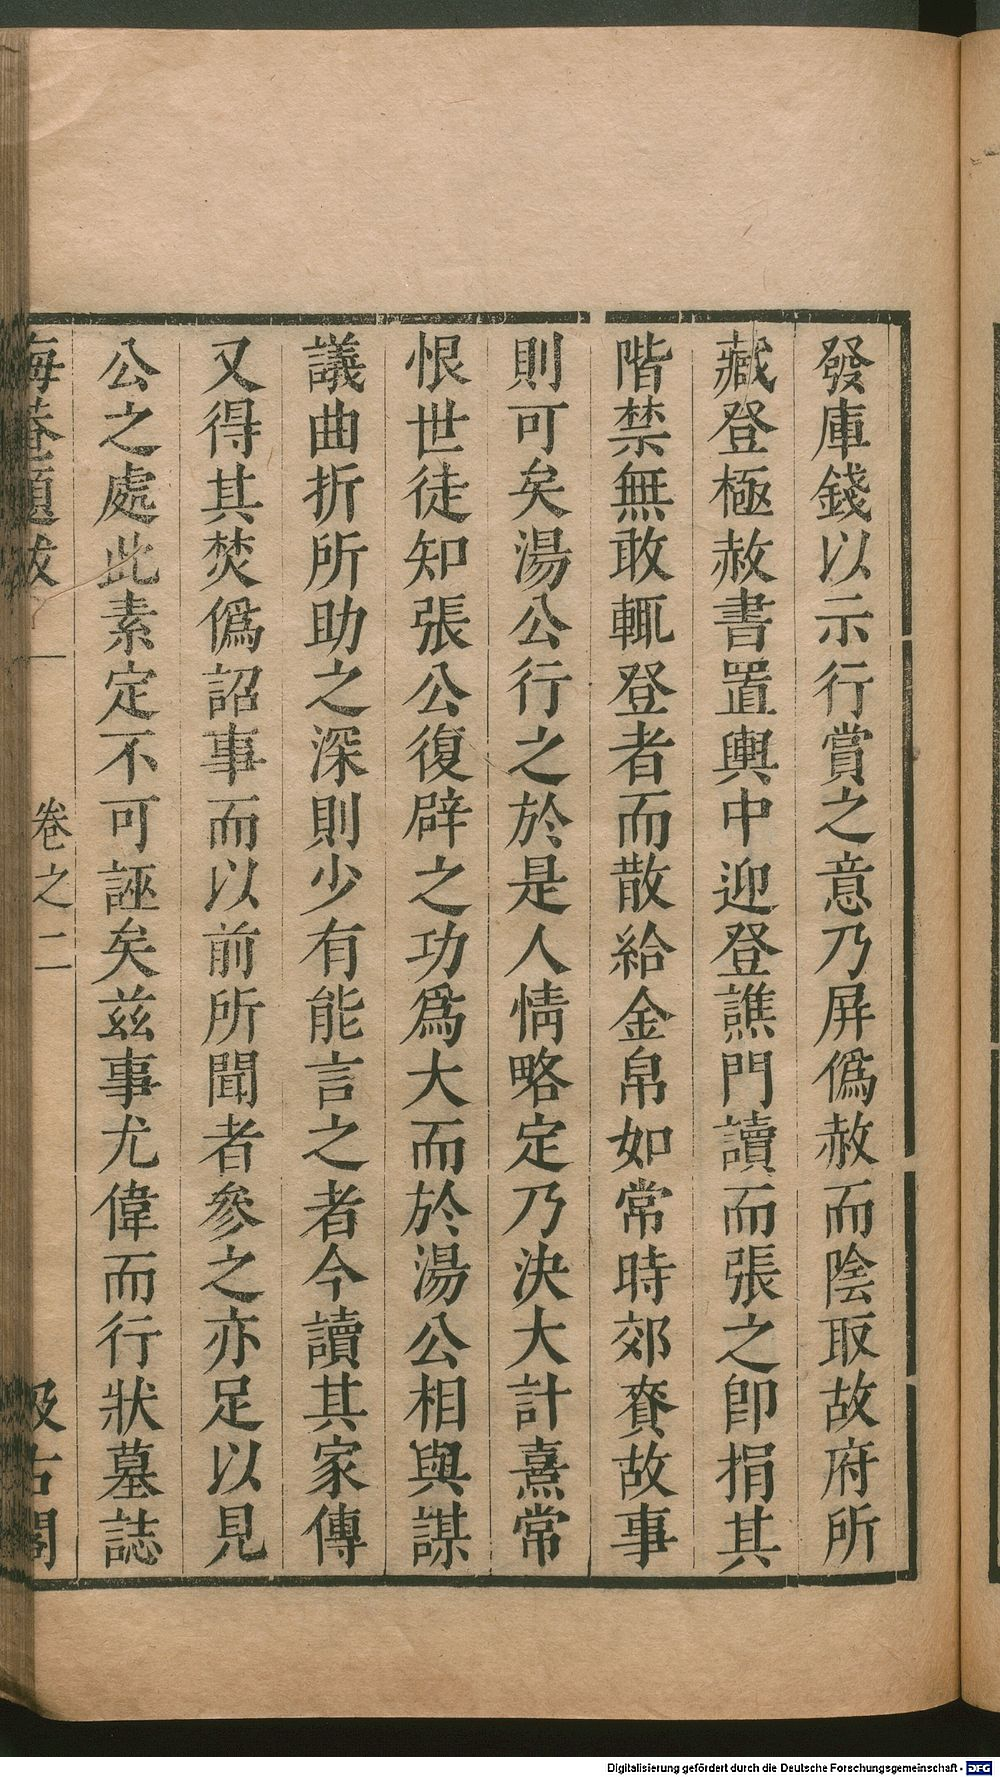 發庫錢以示行賞之意乃屏僞赦而陰取故府所
藏登極赦書置輿中迎登譙門讀而張之卽捐其
階禁無敢輒登者而散給金帛如常時郊賚故事
則可矣湯公行之於是人情略定乃決大計熹常
恨世徒知張公復辟之功爲大而於湯公相與謀
議曲折所助之深則少有能言之者今讀其家傳
又得其焚僞詔事而以前所聞者參之亦足以見
公之處此素定不可誣矣茲事尤偉而行狀墓誌
晦菴題跋 卷之二 汲古閣
Digitalisierung gefördert durch die Deutsche Forschungsgemeinschaft - DFG